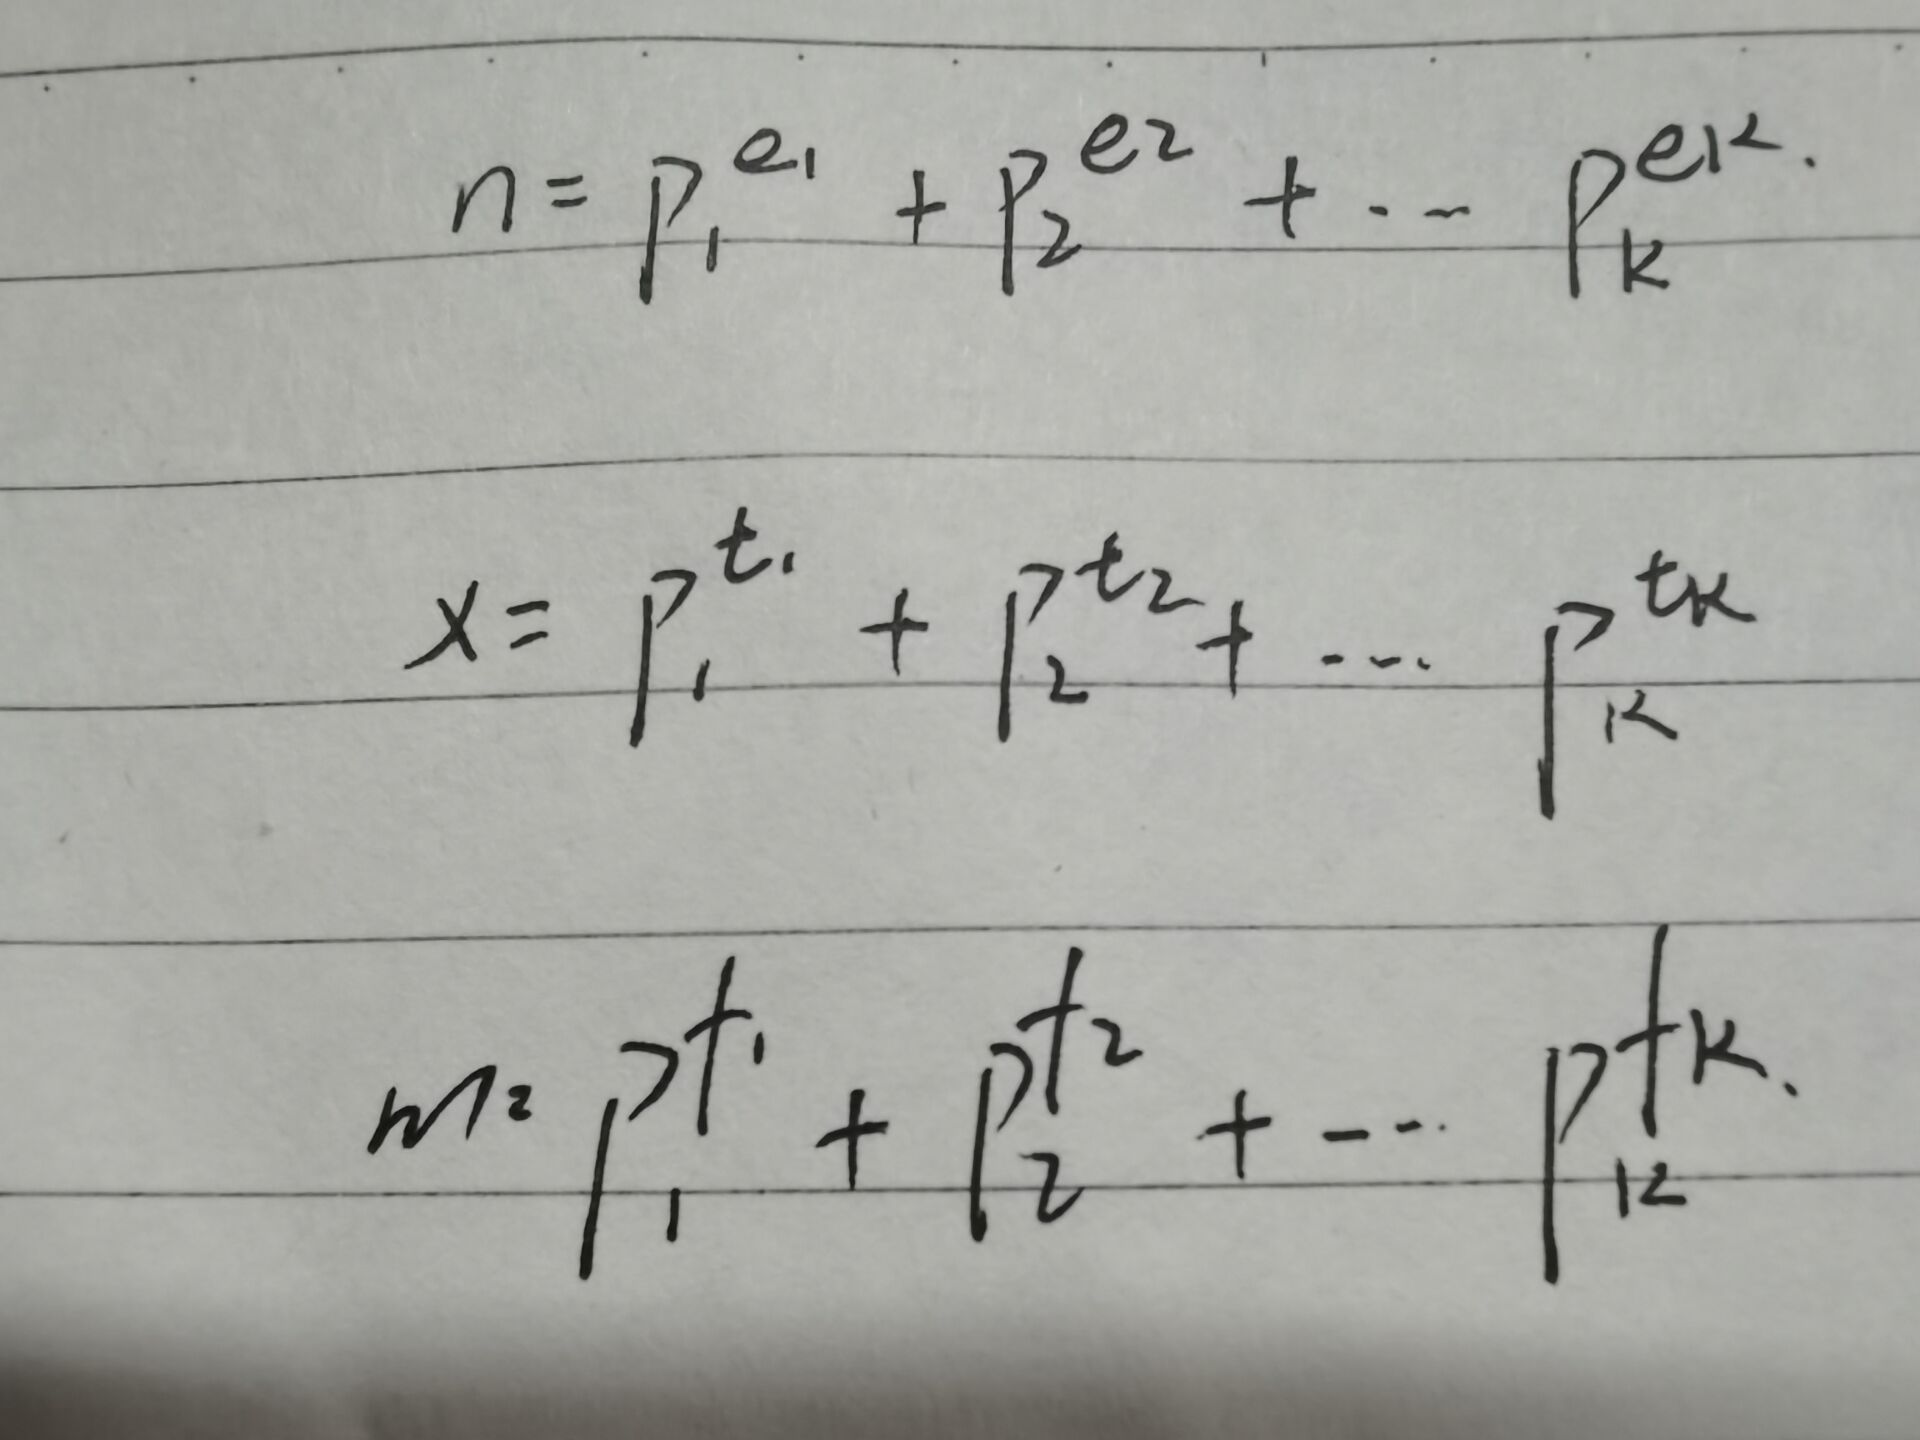 n = p₁^e₁ + p₂^e₂ + ... pₖ^eₖ.
x = p₁^t₁ + p₂^t₂ + ... pₖ^tₖ
m = p₁^f₁ + p₂^f₂ + ... pₖ^fₖ.